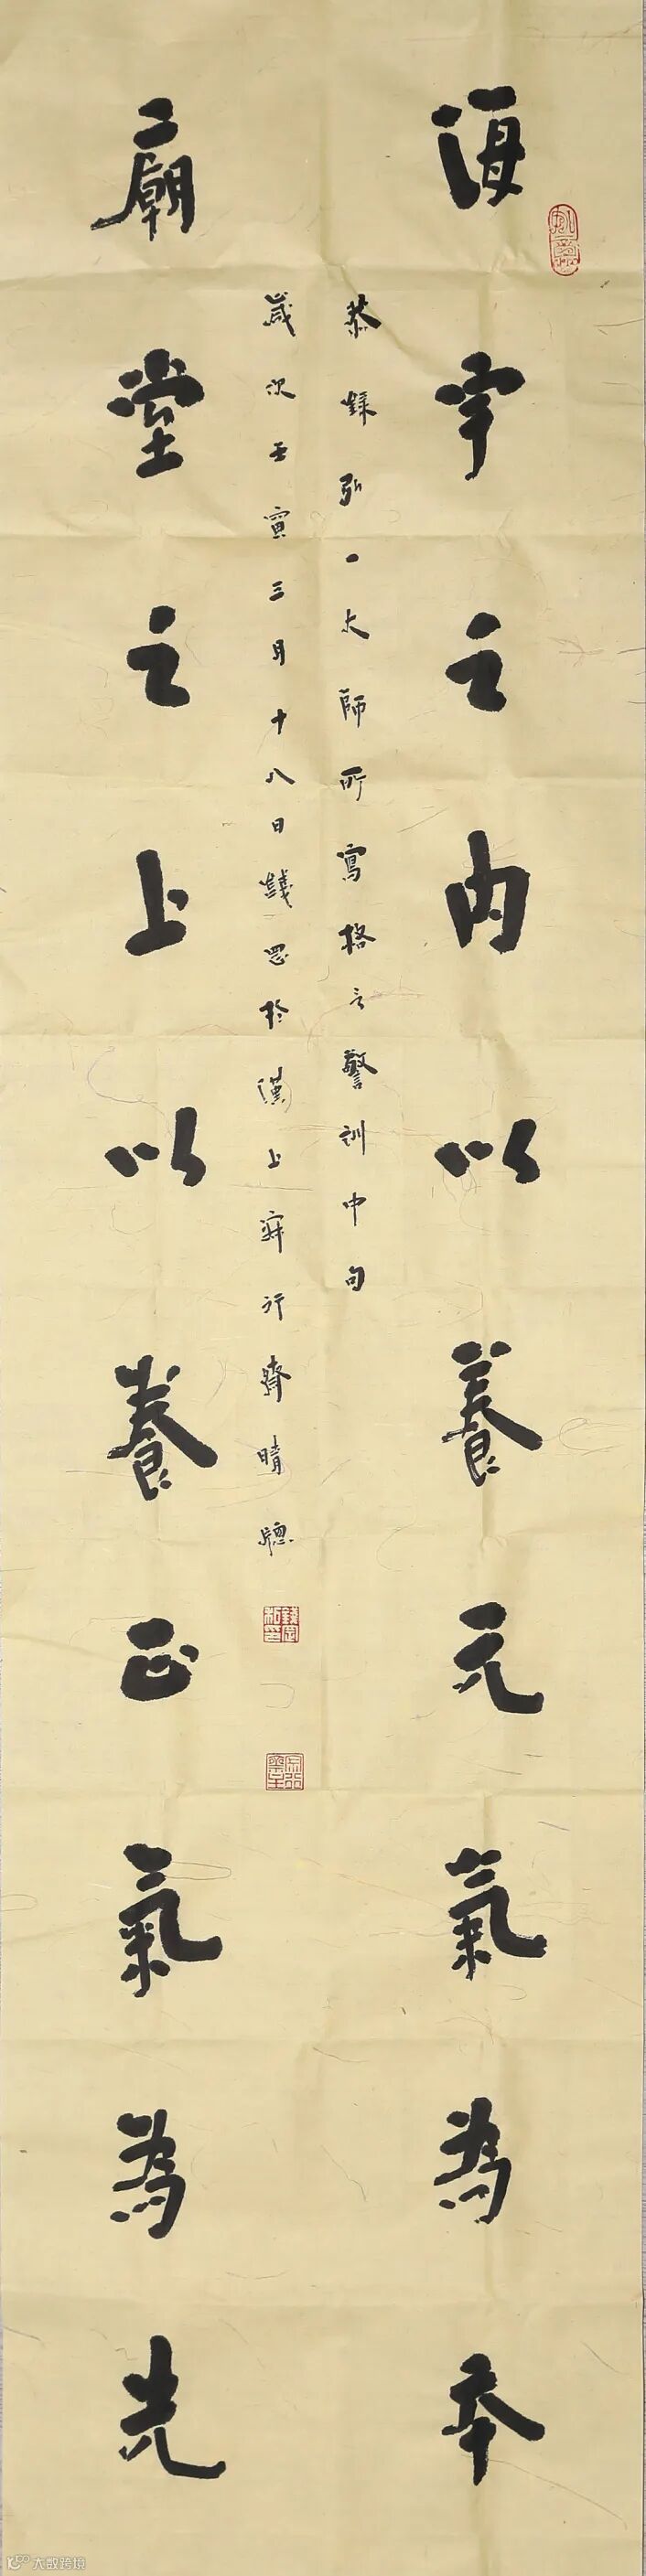 海宇之内以養元氣為本
恭錄弘一大師所寫格言警訓中句
歲次壬寅三月十八日錢罡於漢上寂行齊晴窗
廟堂之上以養正氣為先
大数跨境